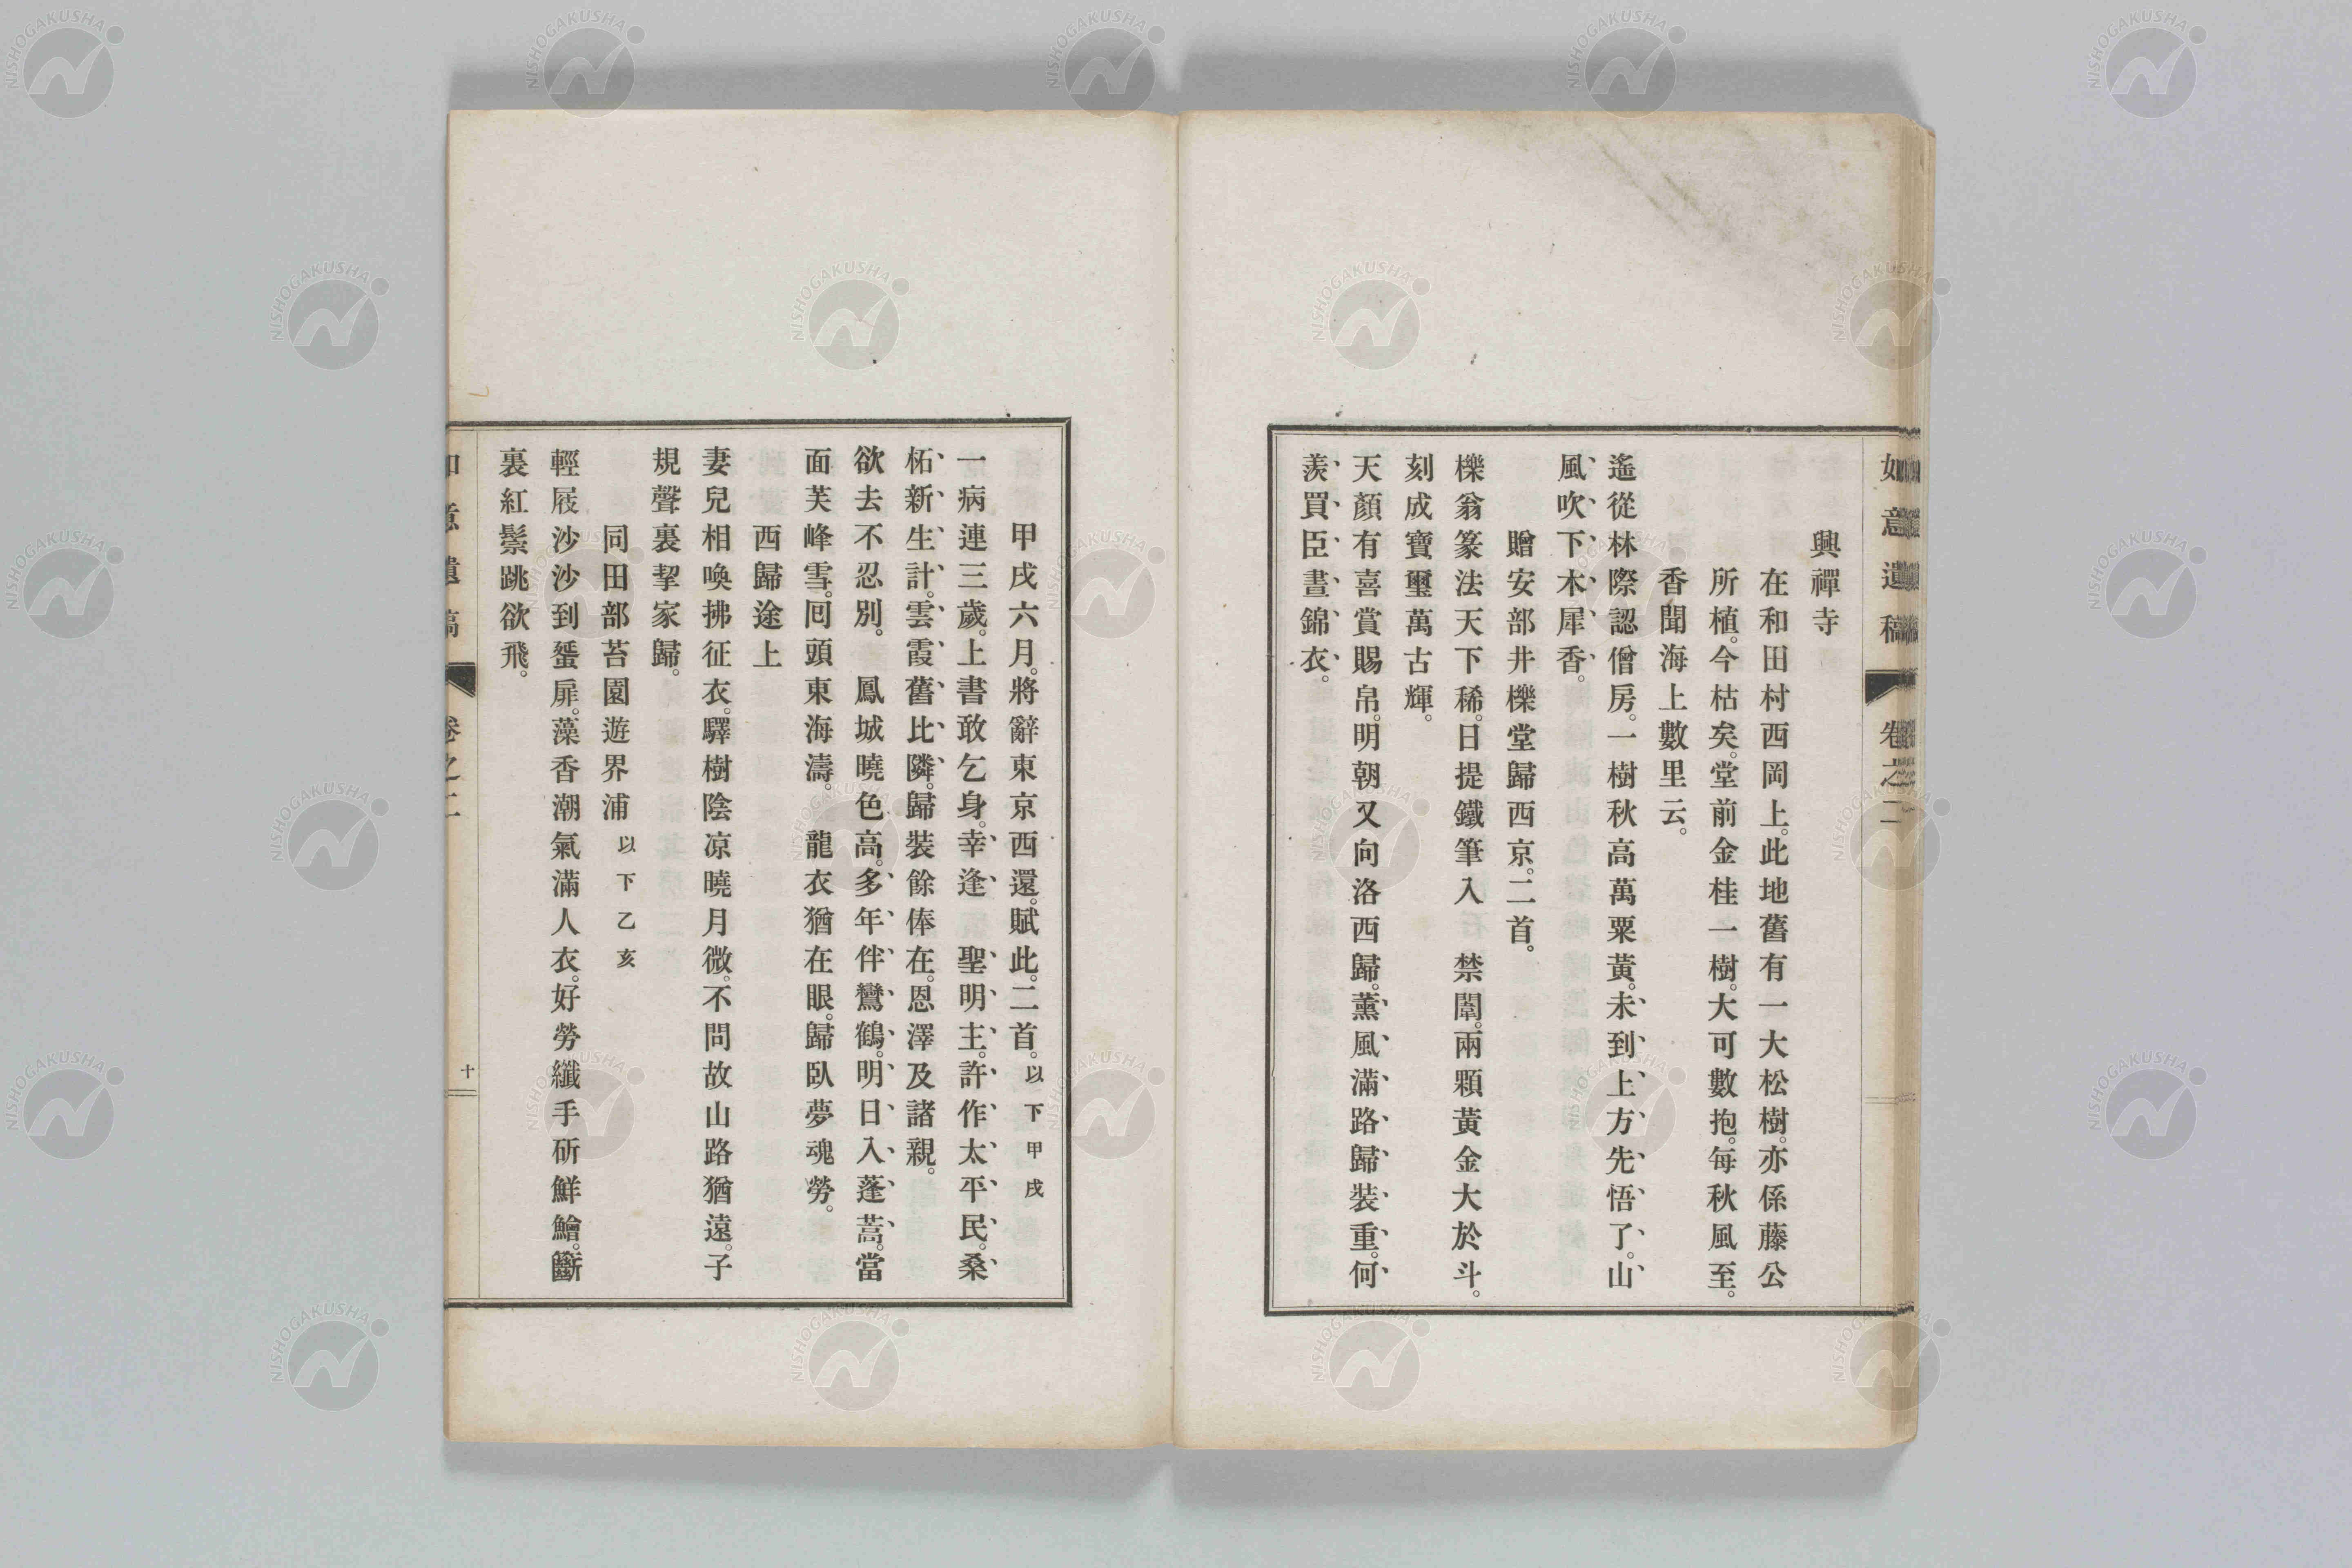 如意遺稿 卷之二
興禪寺
在和田村西岡上。此地舊有一大松樹。亦係藤公
所植。今枯矣。堂前金桂一樹。大可數抱。每秋風至。
香聞海上數里云。
遙從林際認僧房。一樹秋高萬粟黃。未到上方先悟了。山
風吹下木犀香。
贈安部井櫟堂歸西京。二首。
櫟翁篆法天下稀。日提鐵筆入 禁闈。兩顆黃金大於斗。
刻成寶璽萬古輝。
天顏有喜賞賜帛。明朝又向洛西歸。薰風滿路歸裝重。何
羨買臣晝錦衣。
甲戌六月。將辭東京西還。賦此。二首。以下甲戌
一病連三歲。上書敢乞身。幸逢 聖明主。許作太平民。桑
柘新生計。雲霞舊比隣。歸裝餘俸在。恩澤及諸親。
欲去不忍別。 鳳城曉色高。多年伴鸞鶴。明日入蓬蒿。當
面芙峰雪。回頭東海濤。 龍衣猶在眼。歸臥夢魂勞。
西歸途上
妻兒相喚拂征衣。驛樹陰凉曉月微。不問故山路猶遠。子
規聲裏挈家歸。
同田部苔園遊界浦 以下乙亥
輕屐沙沙到蜑扉。藻香潮氣滿人衣。好勞纖手斫鮮鱠。斷
裏紅鬃跳欲飛。
如意遺稿 卷之二 十
NISHOGAKUSHA